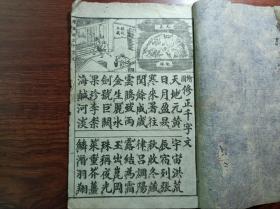 修正千字文
天地元黃 宇宙洪荒
日月盈昃 辰宿列張
寒來暑往 秋收冬藏
閏餘成歲 律呂調陽
雲騰致雨 露結為霜
金生麗水 玉出崑岡
劍號巨闕 珠稱夜光
果珍李柰 菜重芥薑
海鹹河淡 鱗潛羽翔